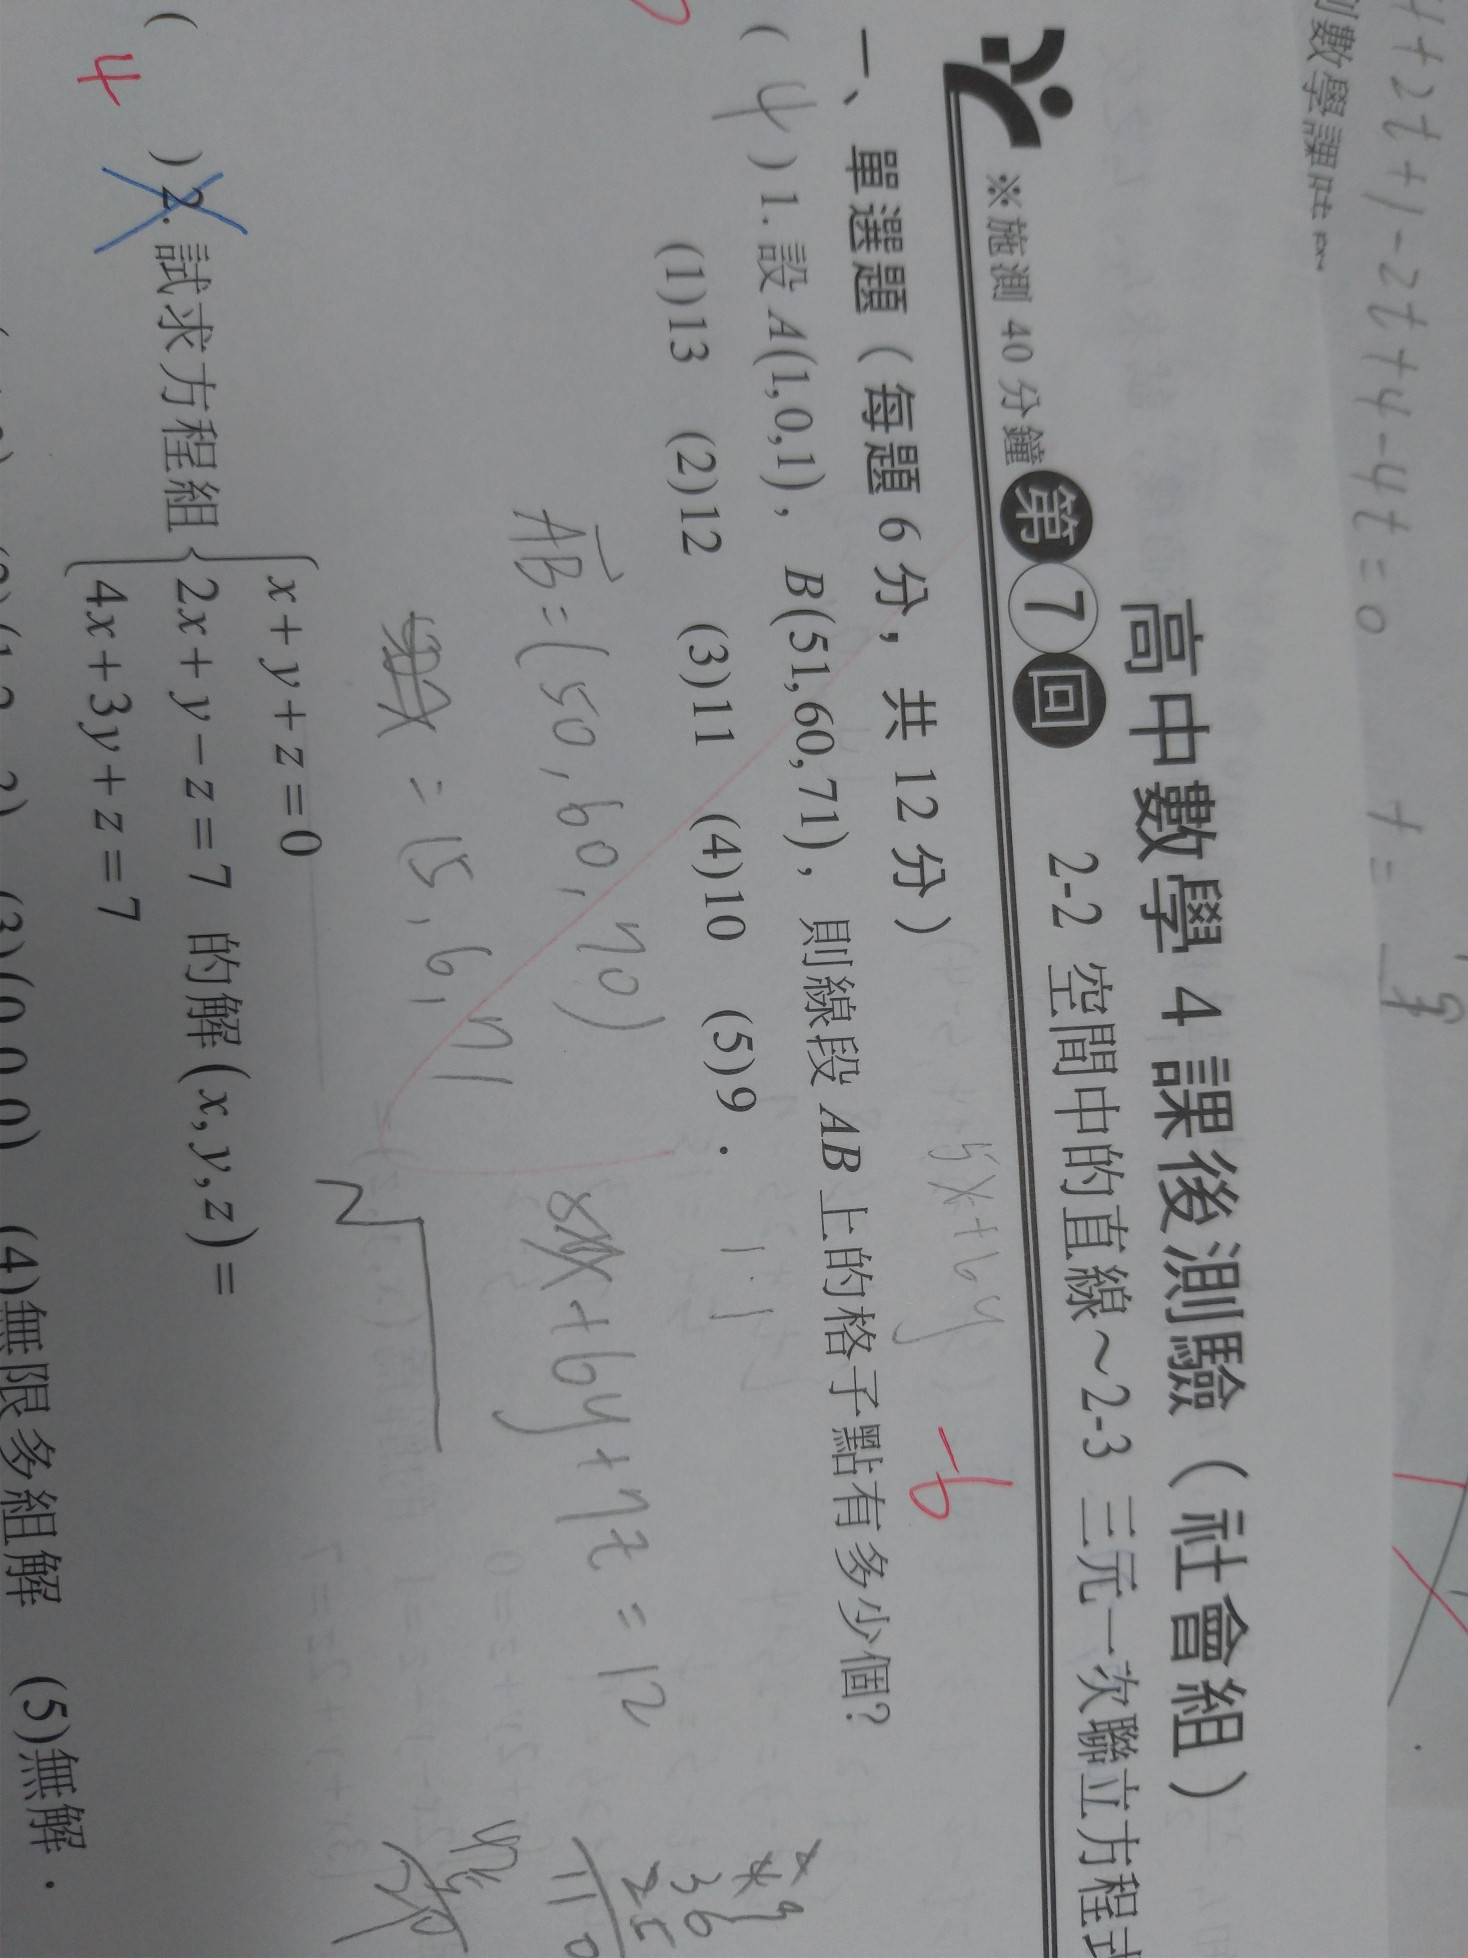 4+2t+1-2t+4-4t=0 t=
高中數學 4 課後測驗（社會組）
※施測 40 分鐘 第 7 回 2-2 空間中的直線～2-3 三元一次聯立方程式
一、單選題（每題 6 分，共 12 分） -6
5x+6y
( 4 ) 1. 設 A(1,0,1)，B(51,60,71)，則線段 AB 上的格子點有多少個？
(1)13 (2)12 (3)11 (4)10 (5)9．
AB=(50,60,70)
+6y+7z=12
=(5,6,7)
36
25
110
( 4 ) 2. 試求方程組 { x+y+z=0
2x+y-z=7 的解(x,y,z)=
4x+3y+z=7
(4)無限多組解 (5)無解．